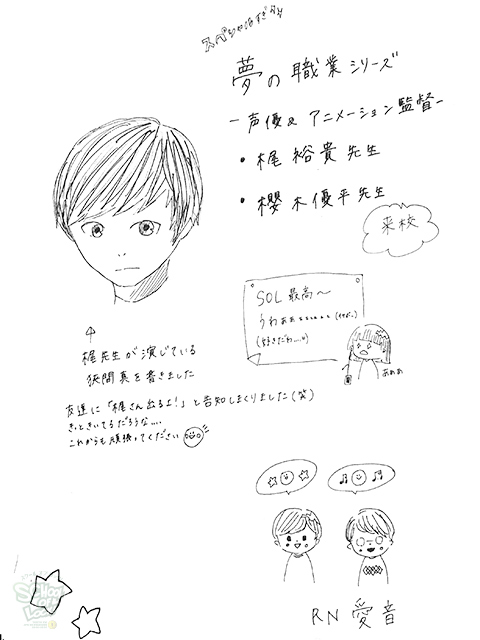 スペシャルすぎるよ
夢の職業シリーズ
-声優&アニメーション監督-
・梶裕貴先生
・櫻木優平先生
来校
SOL最高〜
(好きだわ…。)
あぁぁ
↑
梶先生が演じている
狭間真を書きました
友達に「梶さん出るよ!」と告知しまくりました(笑)
きっときいてるだろうな....
これからも頑張ってください
RN 愛音
School of Lock!